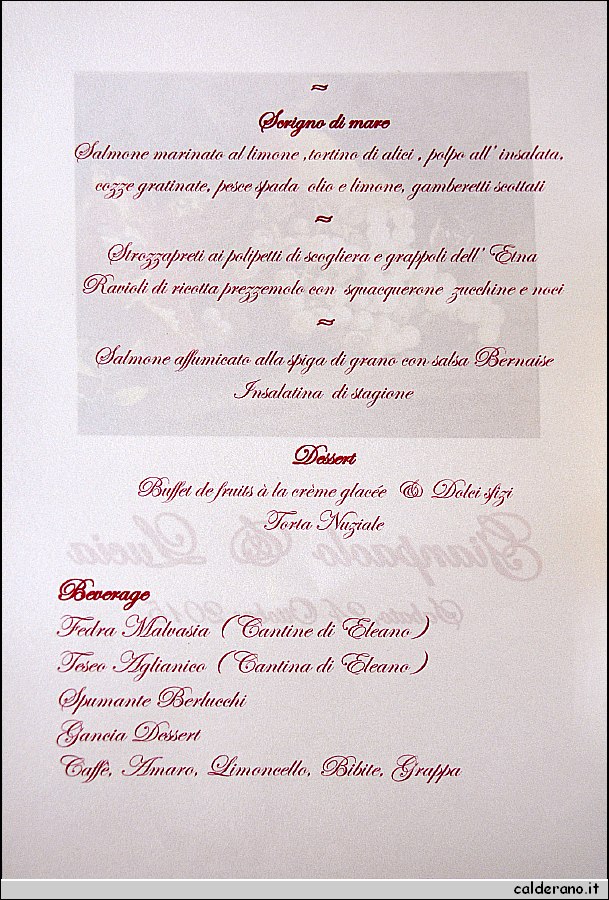 ~
Scrigno di mare
Salmone marinato al limone ,tortino di alici , polpo all' insalata,
cozze gratinate, pesce spada olio e limone, gamberetti scottati
~
Strozzapreti ai polipetti di scogliera e grappoli dell' Etna
Ravioli di ricotta prezzemolo con squacquerone zucchine e noci
~
Salmone affumicato alla spiga di grano con salsa Bernaise
Insalatina di stagione
Dessert
Buffet de fruits à la crème glacée & Dolci sfizi
Torta Nuziale
Gianpaolo & Lucia
Beverage
Fedra Malvasia (Cantine di Eleano)
Teseo Aglianico (Cantina di Eleano)
Spumante Berlucchi
Gancia Dessert
Caffè, Amaro, Limoncello, Bibite, Grappa
calderano.it